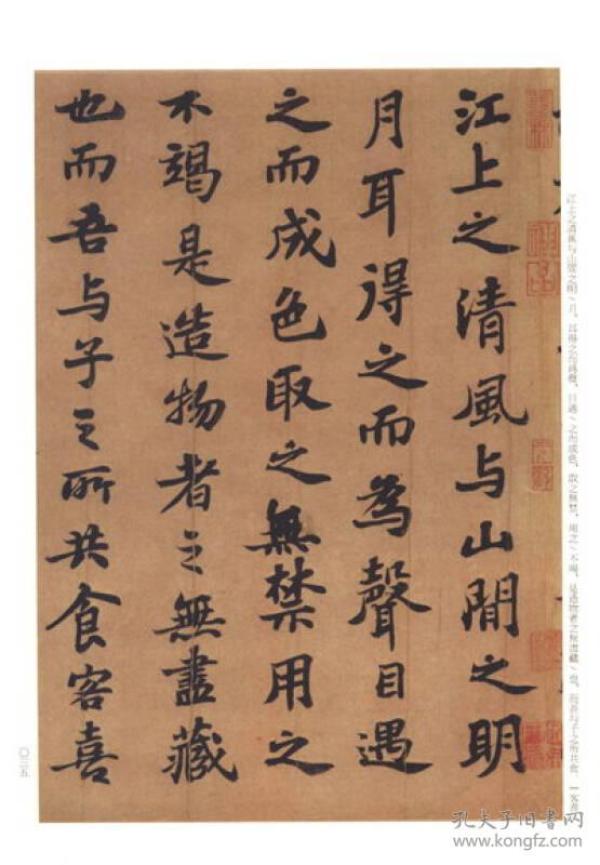 江上之清風与山間之明
月耳得之而為聲目遇
之而成色取之無禁用之
不竭是造物者之無盡藏
也而吾与子之所共食客喜
江上之清風与山間之明
月。耳得之而為聲，目遇
之而成色，取之無禁，用之
不竭，是造物者之無盡藏
也，而吾与子之所共食。
客喜
〇三五
孔夫子旧书网
www.kongfz.com